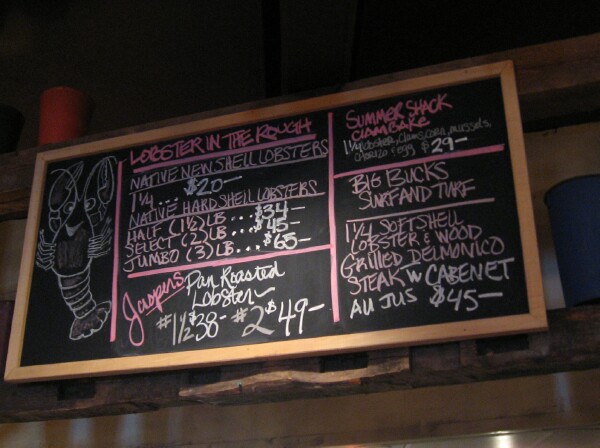 LOBSTER IN THE ROUGH
NATIVE NEW SHELL LOBSTERS
1 1/4 ... $20-
NATIVE HARD SHELL LOBSTERS
HALF (1 1/2) LB ... $34-
SELECT (2) LB ... $45-
JUMBO (3) LB ... $65-
Jaspers Pan Roasted
Lobster
#1 1/2 $38- #2 $49-
SUMMER SHACK
CLAMBAKE
1 1/4 lobster, clams, corn, mussels,
chorizo & egg $29-
BIG BUCKS
SURF AND TURF
1 1/4 SOFT SHELL
LOBSTER & WOOD
GRILLED DELMONICO
STEAK W CABENET
AU JUS $45-